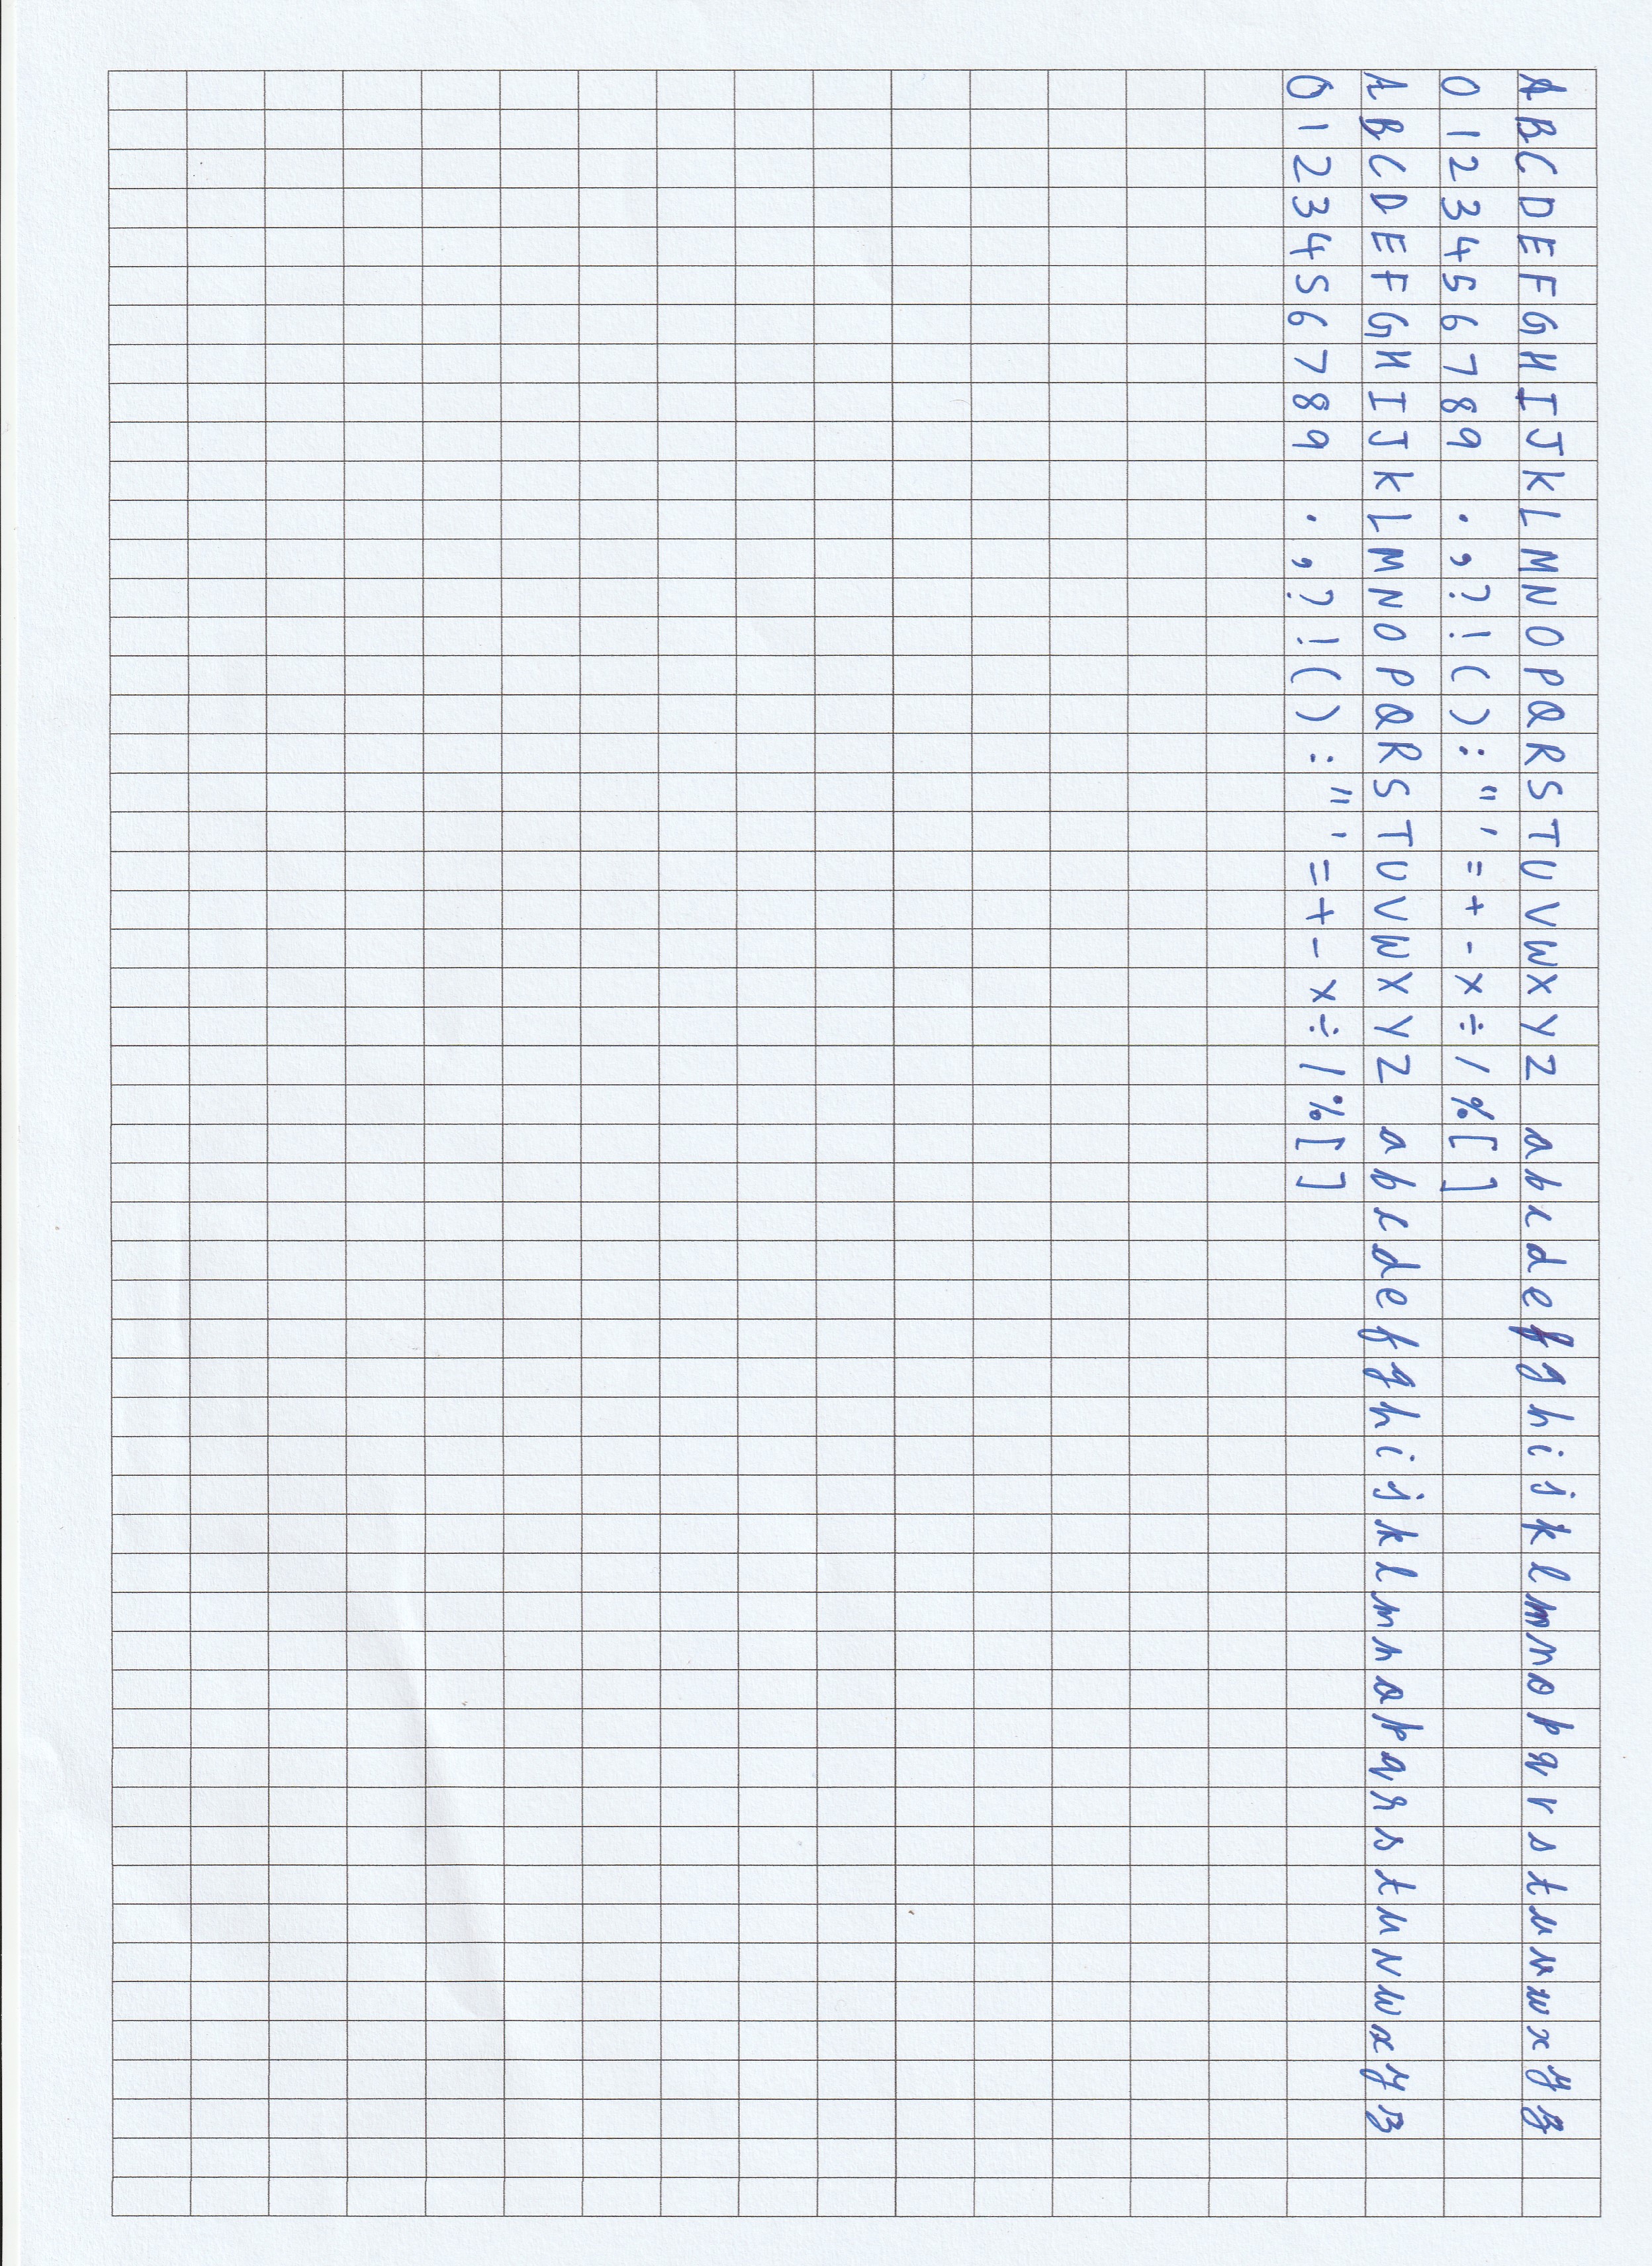 ABCDEFGHIJKLMNOPQRSTUVWXYZ abcdefghijklmnopqrstuvwxyz
0123456789 .,?!():"'=+-×÷/%[]
ABCDEFGHIJKLMNOPQRSTUVWXYZ abcdefghijklmnopqrstuvwxyz
0123456789 .,?!():"'=+-×÷/%[]